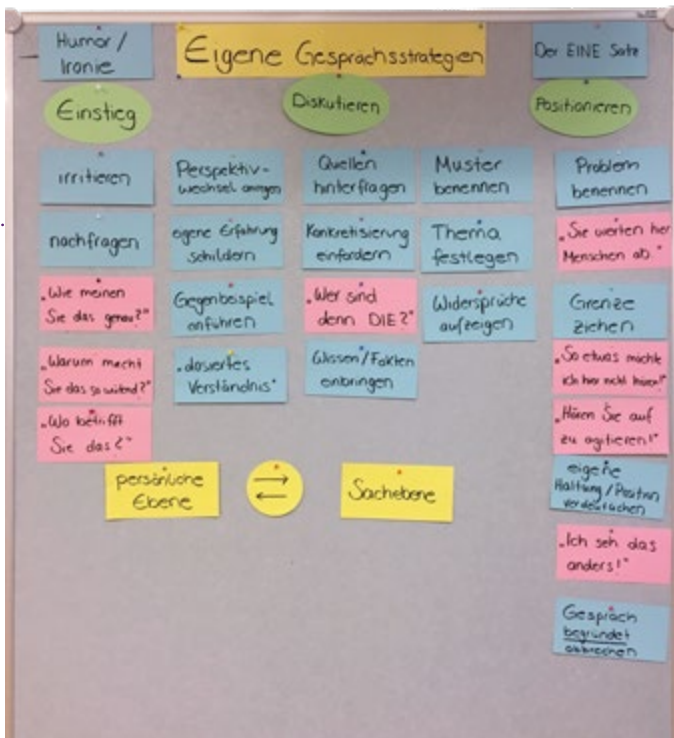 Humor /
Ironie
Eigene Gesprächsstrategien
Der EINE Satz
Einstieg
Diskutieren
Positionieren
irritieren
nachfragen
„Wie meinen
Sie das genau?"
„Warum macht
Sie das so wütend?"
„Wo betrifft
Sie das?"
Perspektiv-
wechsel anregen
eigene Erfahrung
schildern
Gegenbeispiel
anführen
„dosiertes
Verständnis"
Quellen
hinterfragen
Konkretisierung
einfordern
„Wer sind
denn DIE?"
Wissen/Fakten
einbringen
Muster
benennen
Thema
festlegen
Widersprüche
aufzeigen
Problem
benennen
„Sie werten hier
Menschen ab."
Grenze
ziehen
„So etwas möchte
ich hier nicht hören!"
„Hören Sie auf
zu agitieren!"
eigene
Haltung/Position
verdeutlichen
„Ich seh das
anders!"
Gespräch
begründet
abbrechen
persönliche
Ebene
→
←
Sachebene